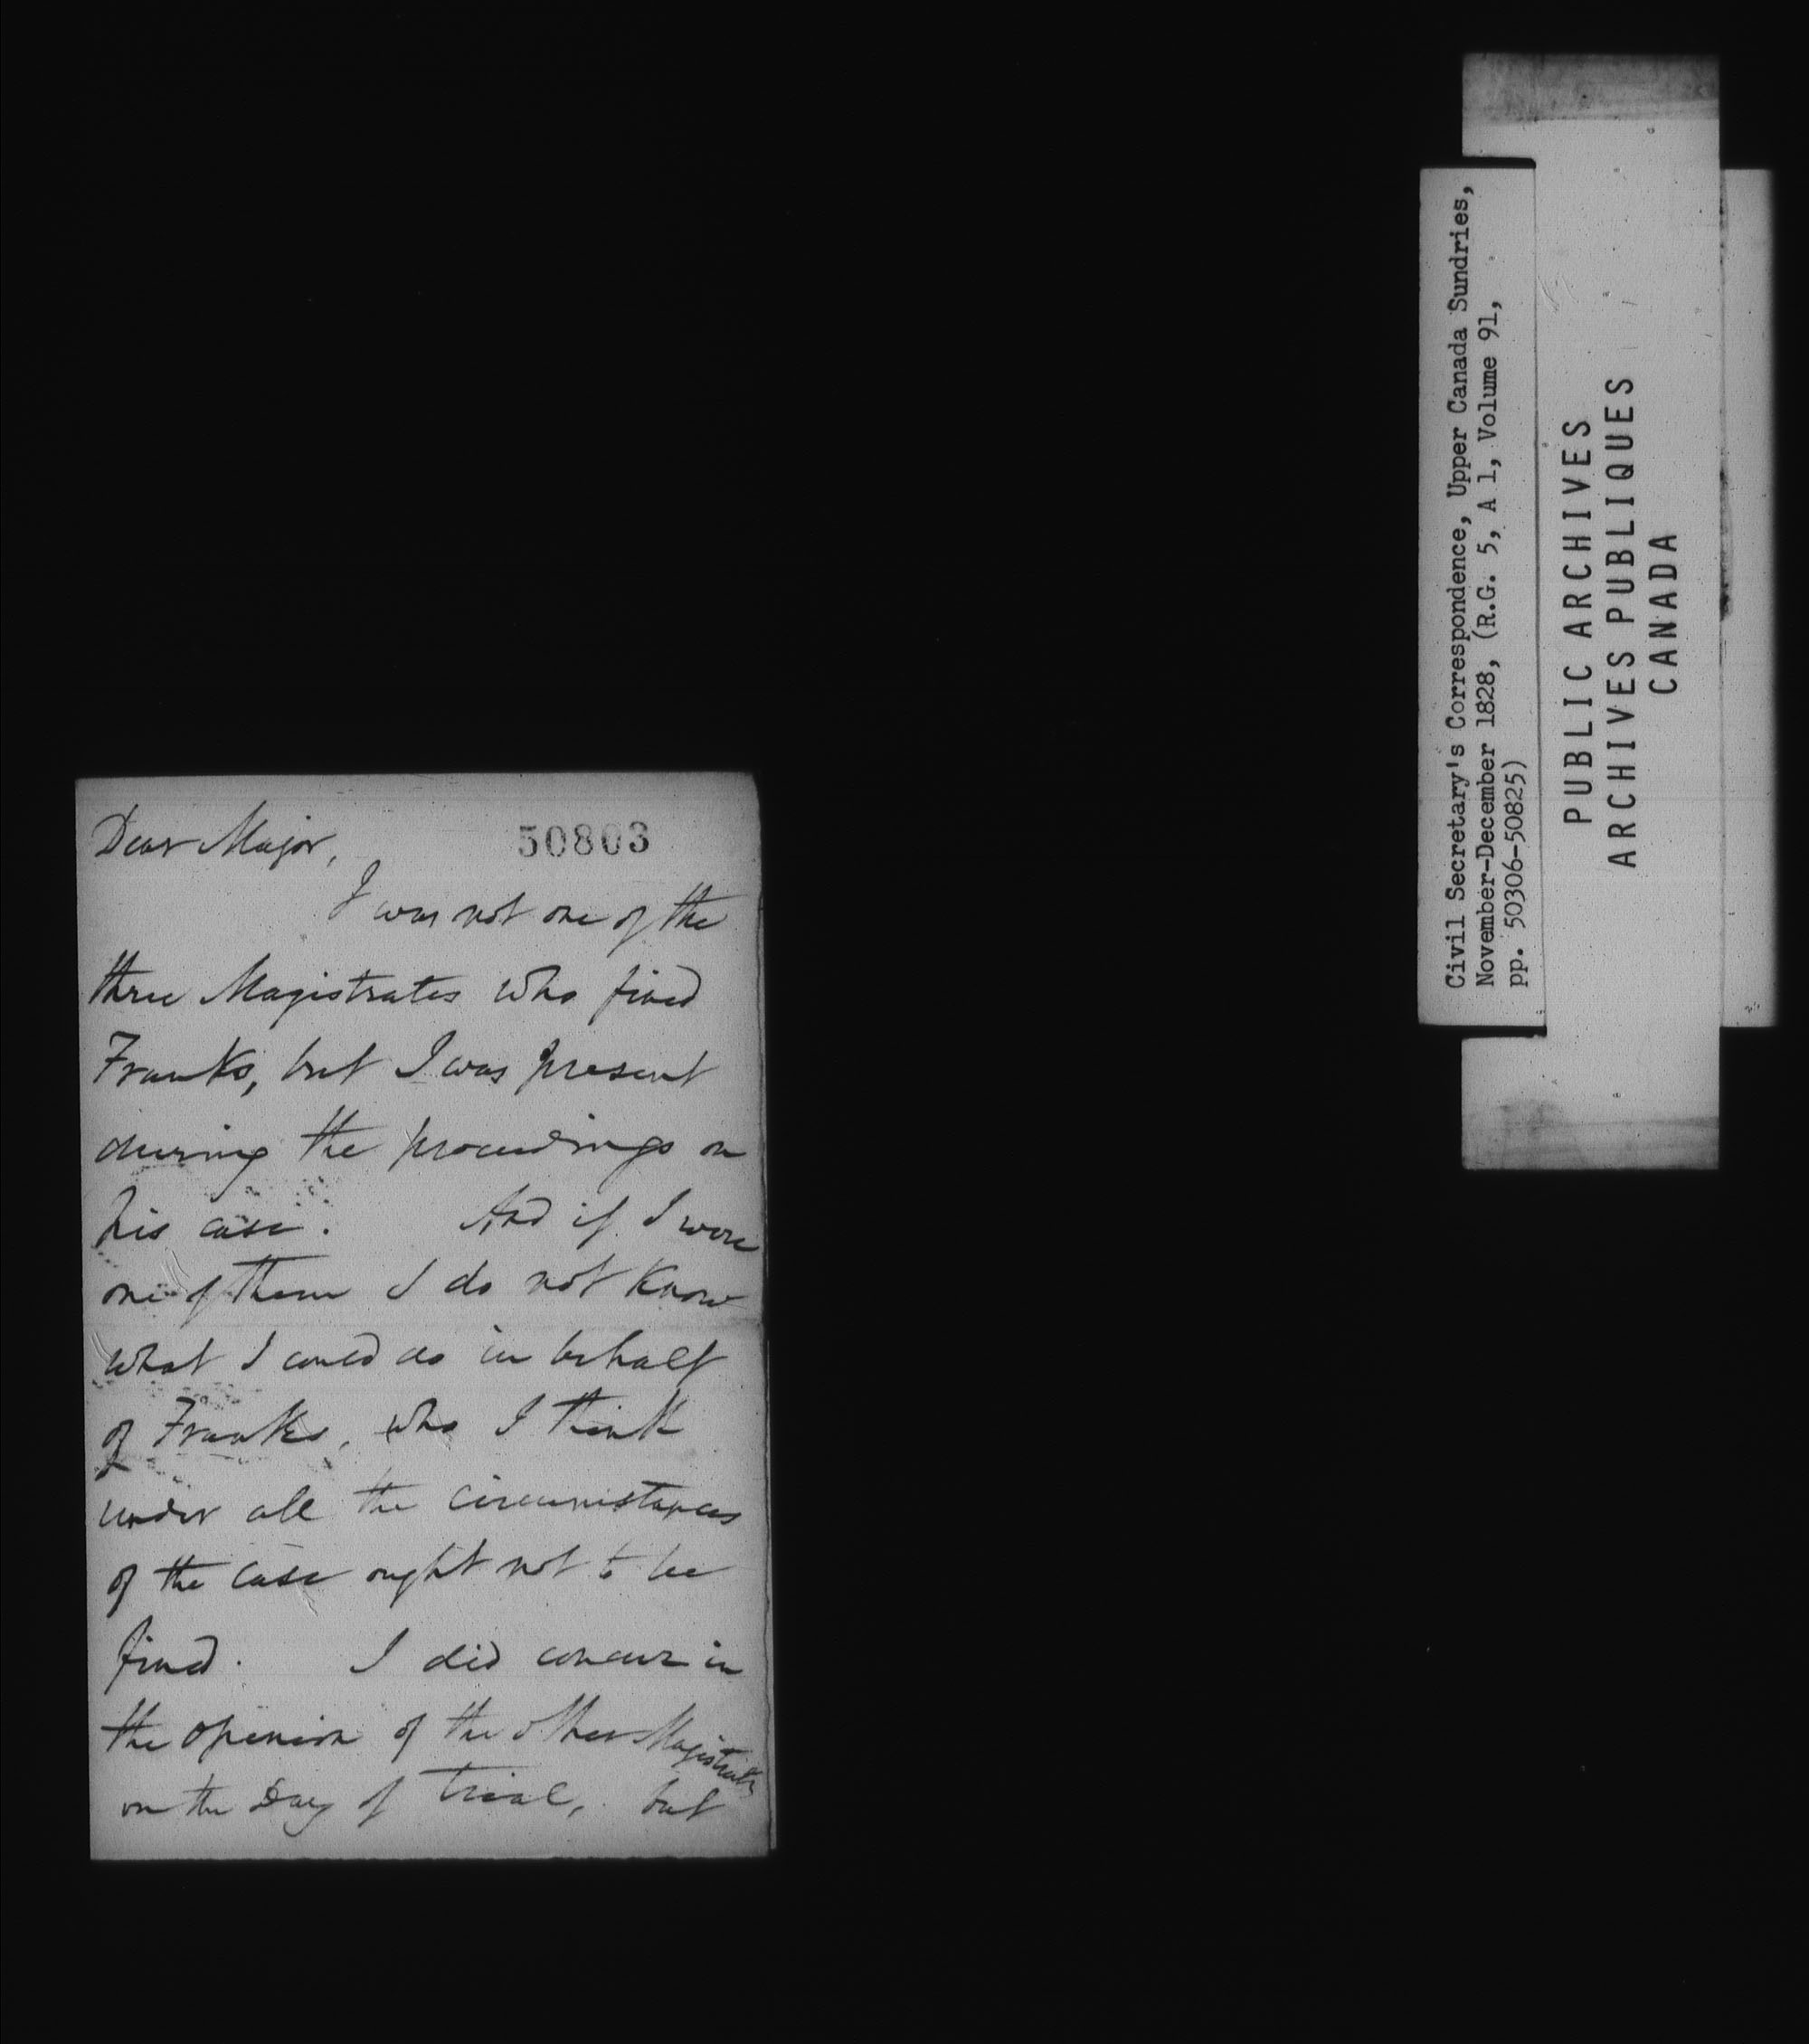 Dear Major,
50803
I was not one of the
three Magistrates who fined
Franks, but I was present
during the proceedings on
his case. And if I were
one of them I do not know
what I could do in behalf
of Franks, who I think
under all the circumstances
of the case ought not to be
fined. I did concur in
the opinion of the other Magistrates
on the Day of trial, but
Civil Secretary's Correspondence, Upper Canada Sundries,
November-December 1828, (R.G. 5, A 1, Volume 91,
pp. 50306-50825)
PUBLIC ARCHIVES
ARCHIVES PUBLIQUES
CANADA